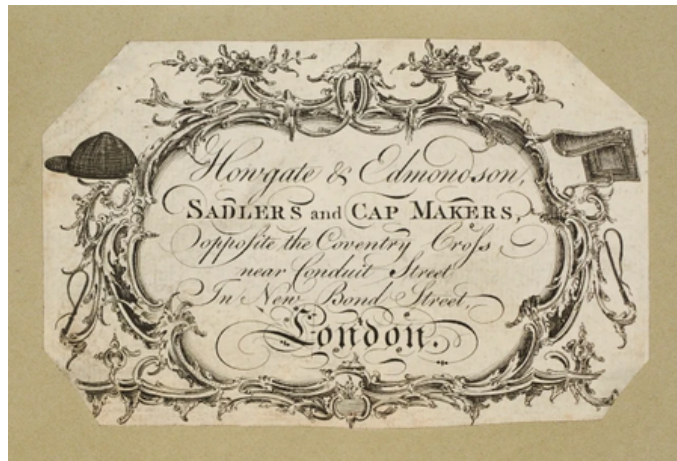 Howgate & Edmondson,
SADLERS and CAP MAKERS,
opposite the Coventry Croſs
near Conduit Street
In New Bond Street,
London.